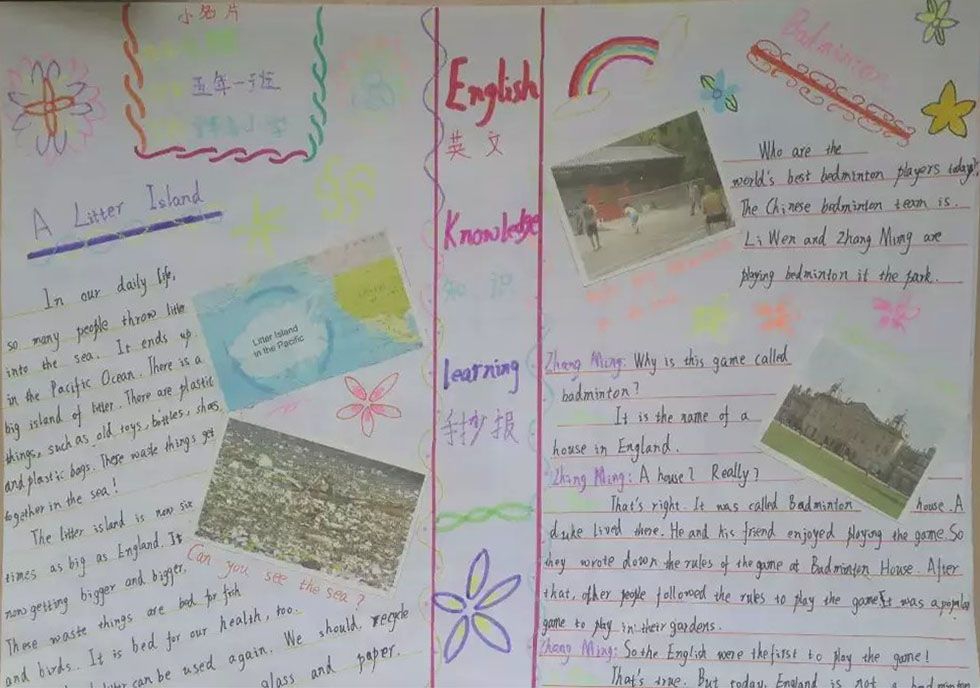 小名片
五年一班
A Litter Island
In our daily life,
so many people throw litter
into the sea. It ends up
in the Pacific Ocean. There is a
big island of litter. There are plastic
things, such as old toys, bottles, shoes
and plastic bags. These waste things get
together in the sea!
The litter island is now six
times as big as England. It
now getting bigger and bigger,
These waste things are bad for fish
and birds. It is bed for our health, too.
can be used again. We should recycle
glass and paper.
Litter Island
in the Pacific
Can you see the sea?
English
英文
Knowledge
知识
learning
手抄报
Badminton
Who are the
world's best bedminton players today?
The Chinese bedminton team is.
Li Wen and Zhang Ming are
playing bedminton it the park.
Zhang Ming: Why is this game called
badminton?
It is the name of a
house in England.
Zhang Ming: A house? Really?
That's right. It was called Badminton house. A
duke lived there. He and his friend enjoyed playing the game. So
they wrote down the rules of the game at Badminton House. After
that, other people followed the rules to play the game. It was a popular
game to play in their gardens.
Zhang Ming: So the English were the first to play the game!
That's true. But today, England is not a badminton